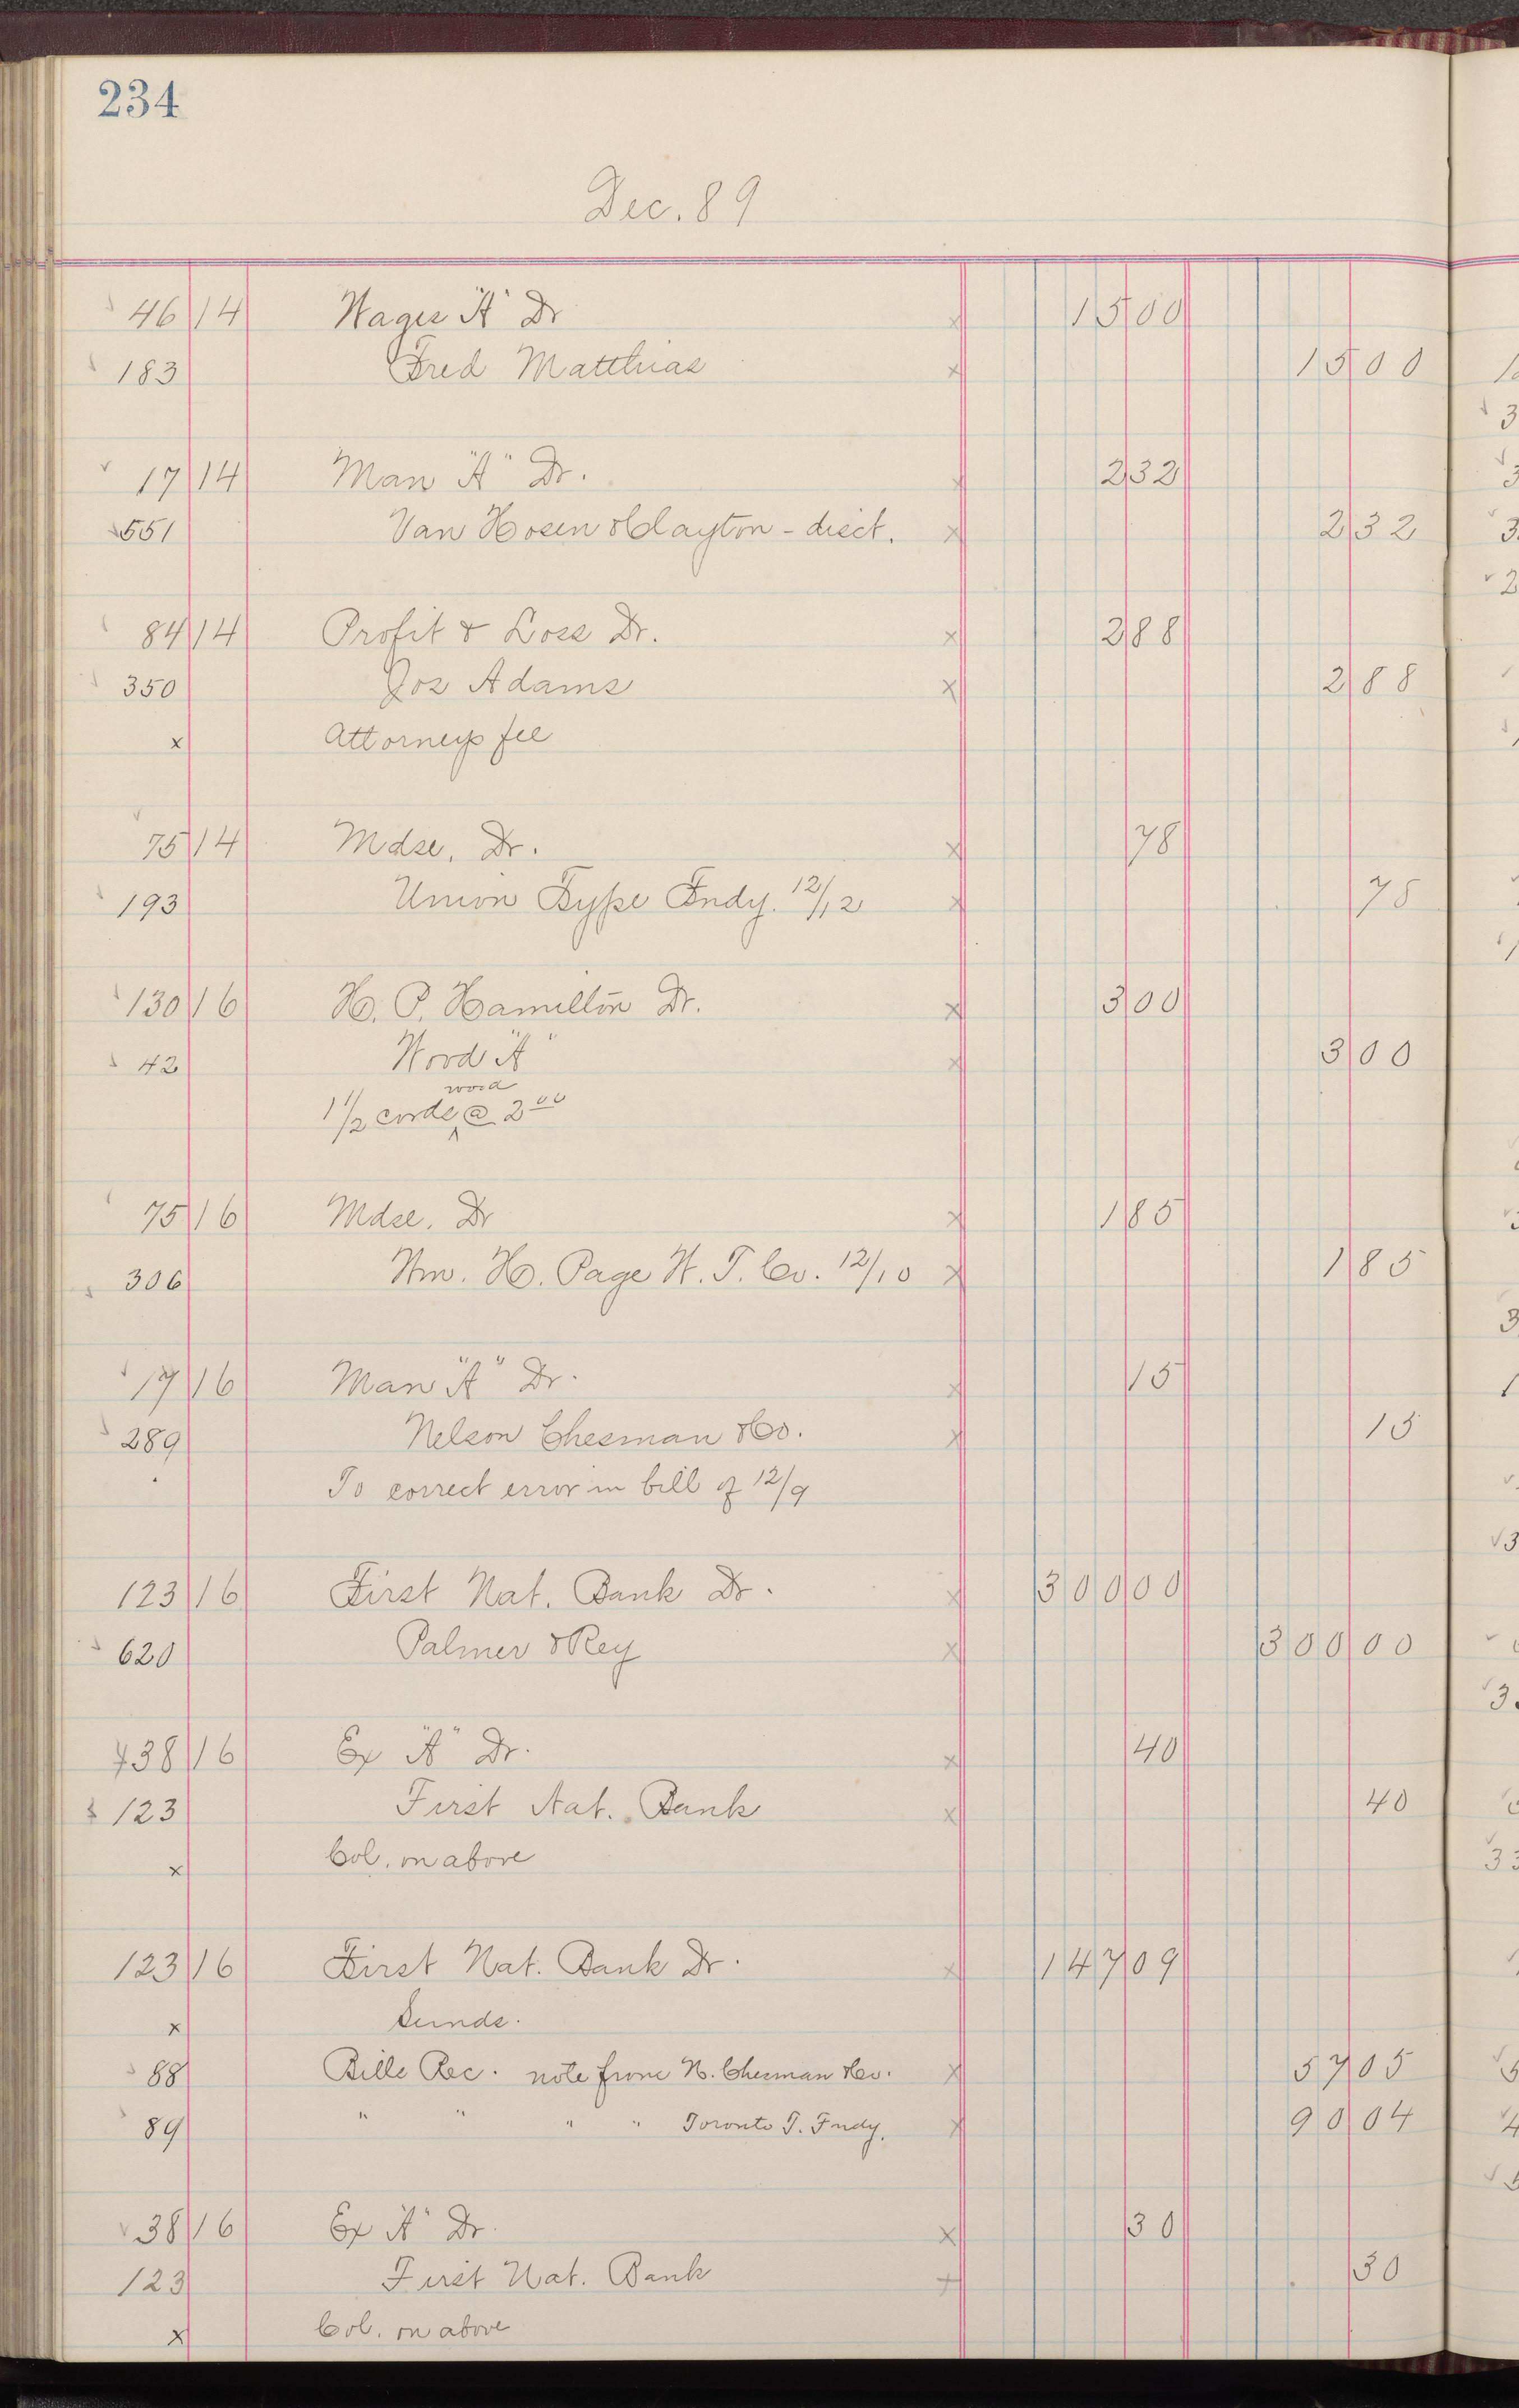 234
Dec. 89
46 14 Wages "A" Dr × 15 00
183 Fred Matthias × 15 00
17 14 Man "A" Dr. × 2 32
551 Van Hosen & Clayton - disct. × 2 32
84 14 Profit & Loss Dr. × 2 88
350 Jos Adams × 2 88
× Attorneys fee
75 14 Mdse. Dr. × 78
193 Union Type Fndy. 12/12 × 78
130 16 H. P. Hamilton Dr. × 3 00
42 Wood "A" × 3 00
1 1/2 cords wood @ 2 00
75 16 Mdse. Dr × 1 85
306 Wm. H. Page W. T. Co. 12/10 × 1 85
17 16 Man "A" Dr. × 15
289 Nelson Chesman & Co. × 15
To correct error in bill of 12/9
123 16 First Nat. Bank Dr. × 300 00
620 Palmer & Rey × 300 00
38 16 Ex "A" Dr. × 40
123 First Nat. Bank × 40
× Col. on above
123 16 First Nat. Bank Dr. × 147 09
× Sunds.
88 Bills Rec. note from N. Chesman & Co. × 57 05
89 " " " " Toronto T. Fndy. × 90 04
38 16 Ex "A" Dr. × 30
123 First Nat. Bank × 30
× Col. on above